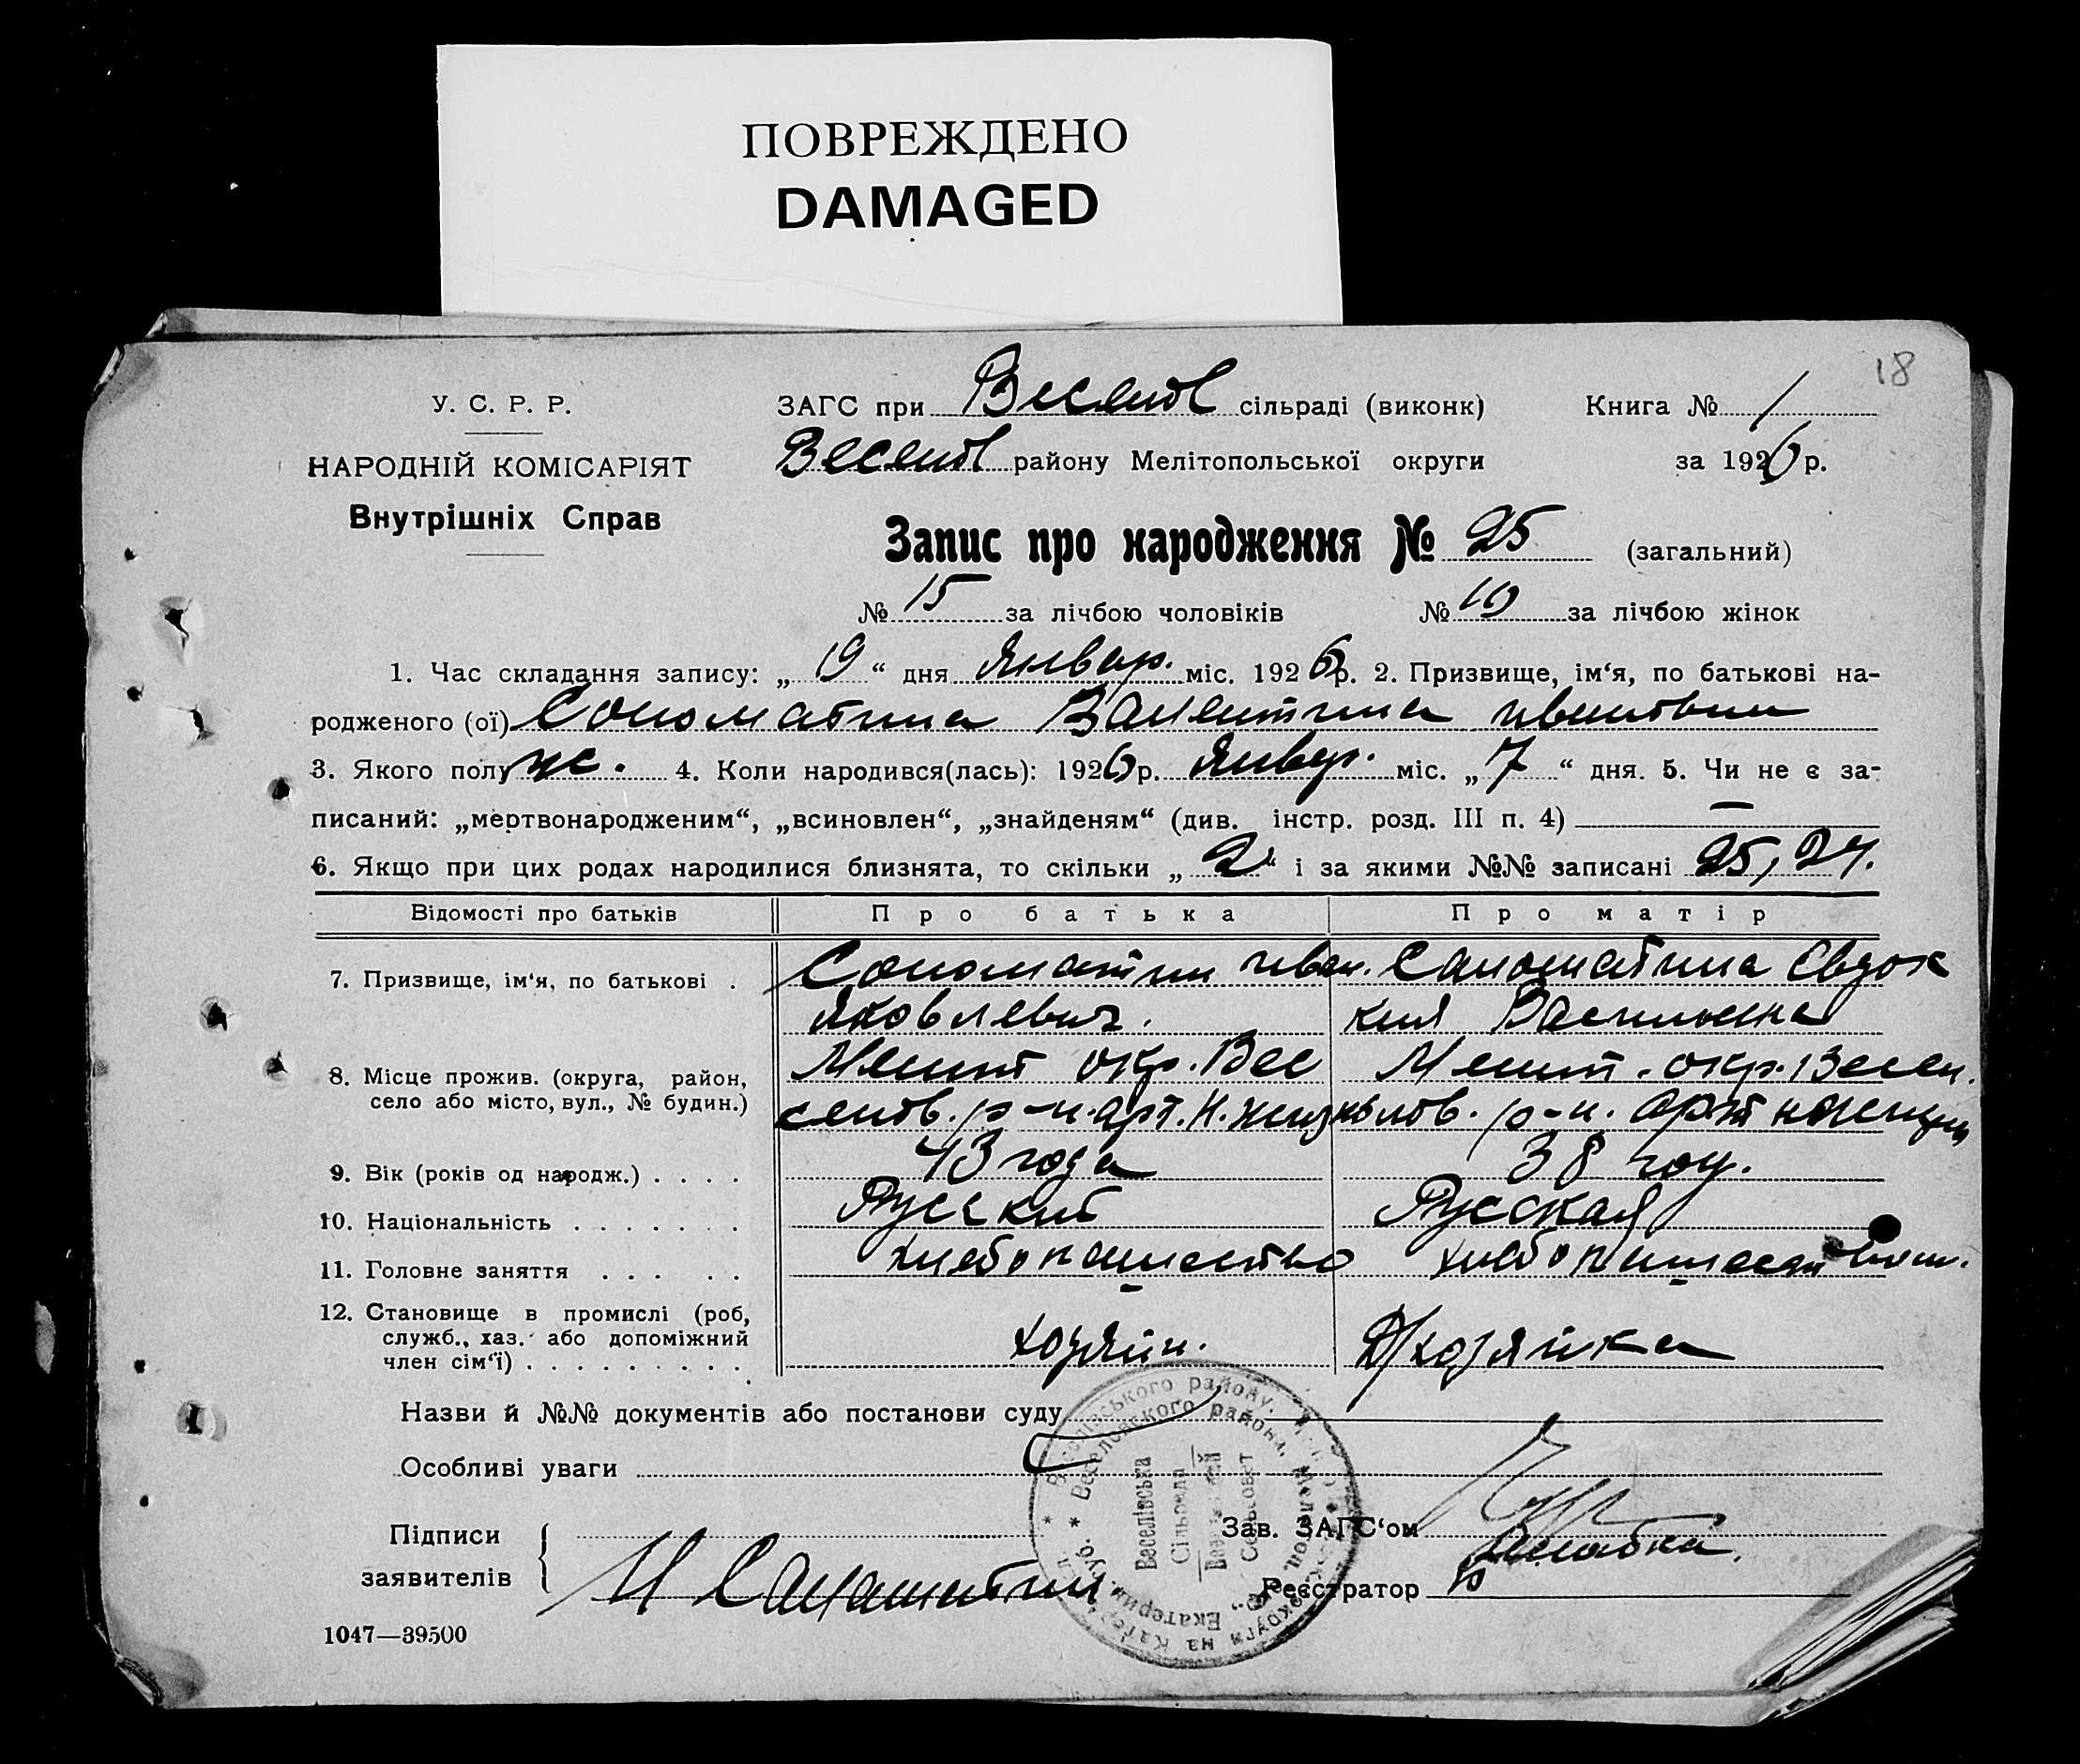 ПОВРЕЖДЕНО
DAMAGED
18
У. С. Р. Р.
НАРОДНІЙ КОМІСАРІЯТ
Внутрішніх Справ
ЗАГС при Веселов сільраді (виконк) Книга № 1
Веселов району Мелітопольської округи за 1926 р.
Запис про народження № 25 (загальний)
№ 15 за лічбою чоловіків № 10 за лічбою жінок
1. Час складання запису: „ 19 “ дня Январ. міс. 1926 р. 2. Призвище, ім‘я, по батькові на-
родженого (ої) Соломатина Валентина
3. Якого полу ж. 4. Коли народився(лась): 1926 р. Январ. міс. „ 7 “ дня. 5. Чи не є за-
писаний: „мертвонародженим“, „всиновлен“, „знайденям“ (див. інстр. розд. III п. 4) —
6. Якщо при цих родах народилися близнята, то скільки „ 2 “ і за якими №№ записані 25, 24.
Відомості про батьків Про батька Про матір
7. Призвище, ім‘я, по батькові . Соломатин Иван. Саломатина Евдок
Яковлевич. кия Васильевна
8. Місце прожив. (округа, район, Мелит окр. Вес Мелит. окр. Весел.
село або місто, вул., № будин.) селов. р-н. арт. Н. р-н. арт
9. Вік (років од народж.) . . . . 43 года 38 год.
10. Національність . . . . . . . Русский Русская
11. Головне заняття . . . . . хлебопашество
12. Становище в промислі (роб,
служб., хаз. або допоміжний хозяин. Д/хозяйка
член сім‘ї) . . . . . . . . .
Назви й №№ документів або постанови суду
Особливі уваги
Підписи Зав. ЗАГС‘ом
заявителів И Саламатин Реєстратор
Веселівська
Сільрада
Сельсовет
1047—39500